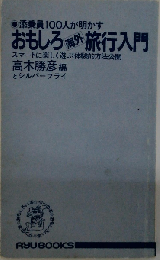 添乗員100人が明かす
おもしろ海外旅行入門
スマートに楽しく遊ぶ体験的方法公開
高木勝彦 編
とシルバーフライ
RYU BOOKS